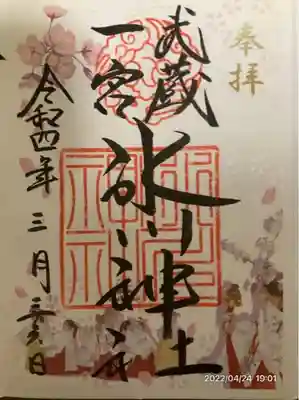 奉拝
武蔵
一宮
氷川神社
令和四年三月二六日
2022/04/24 19:01